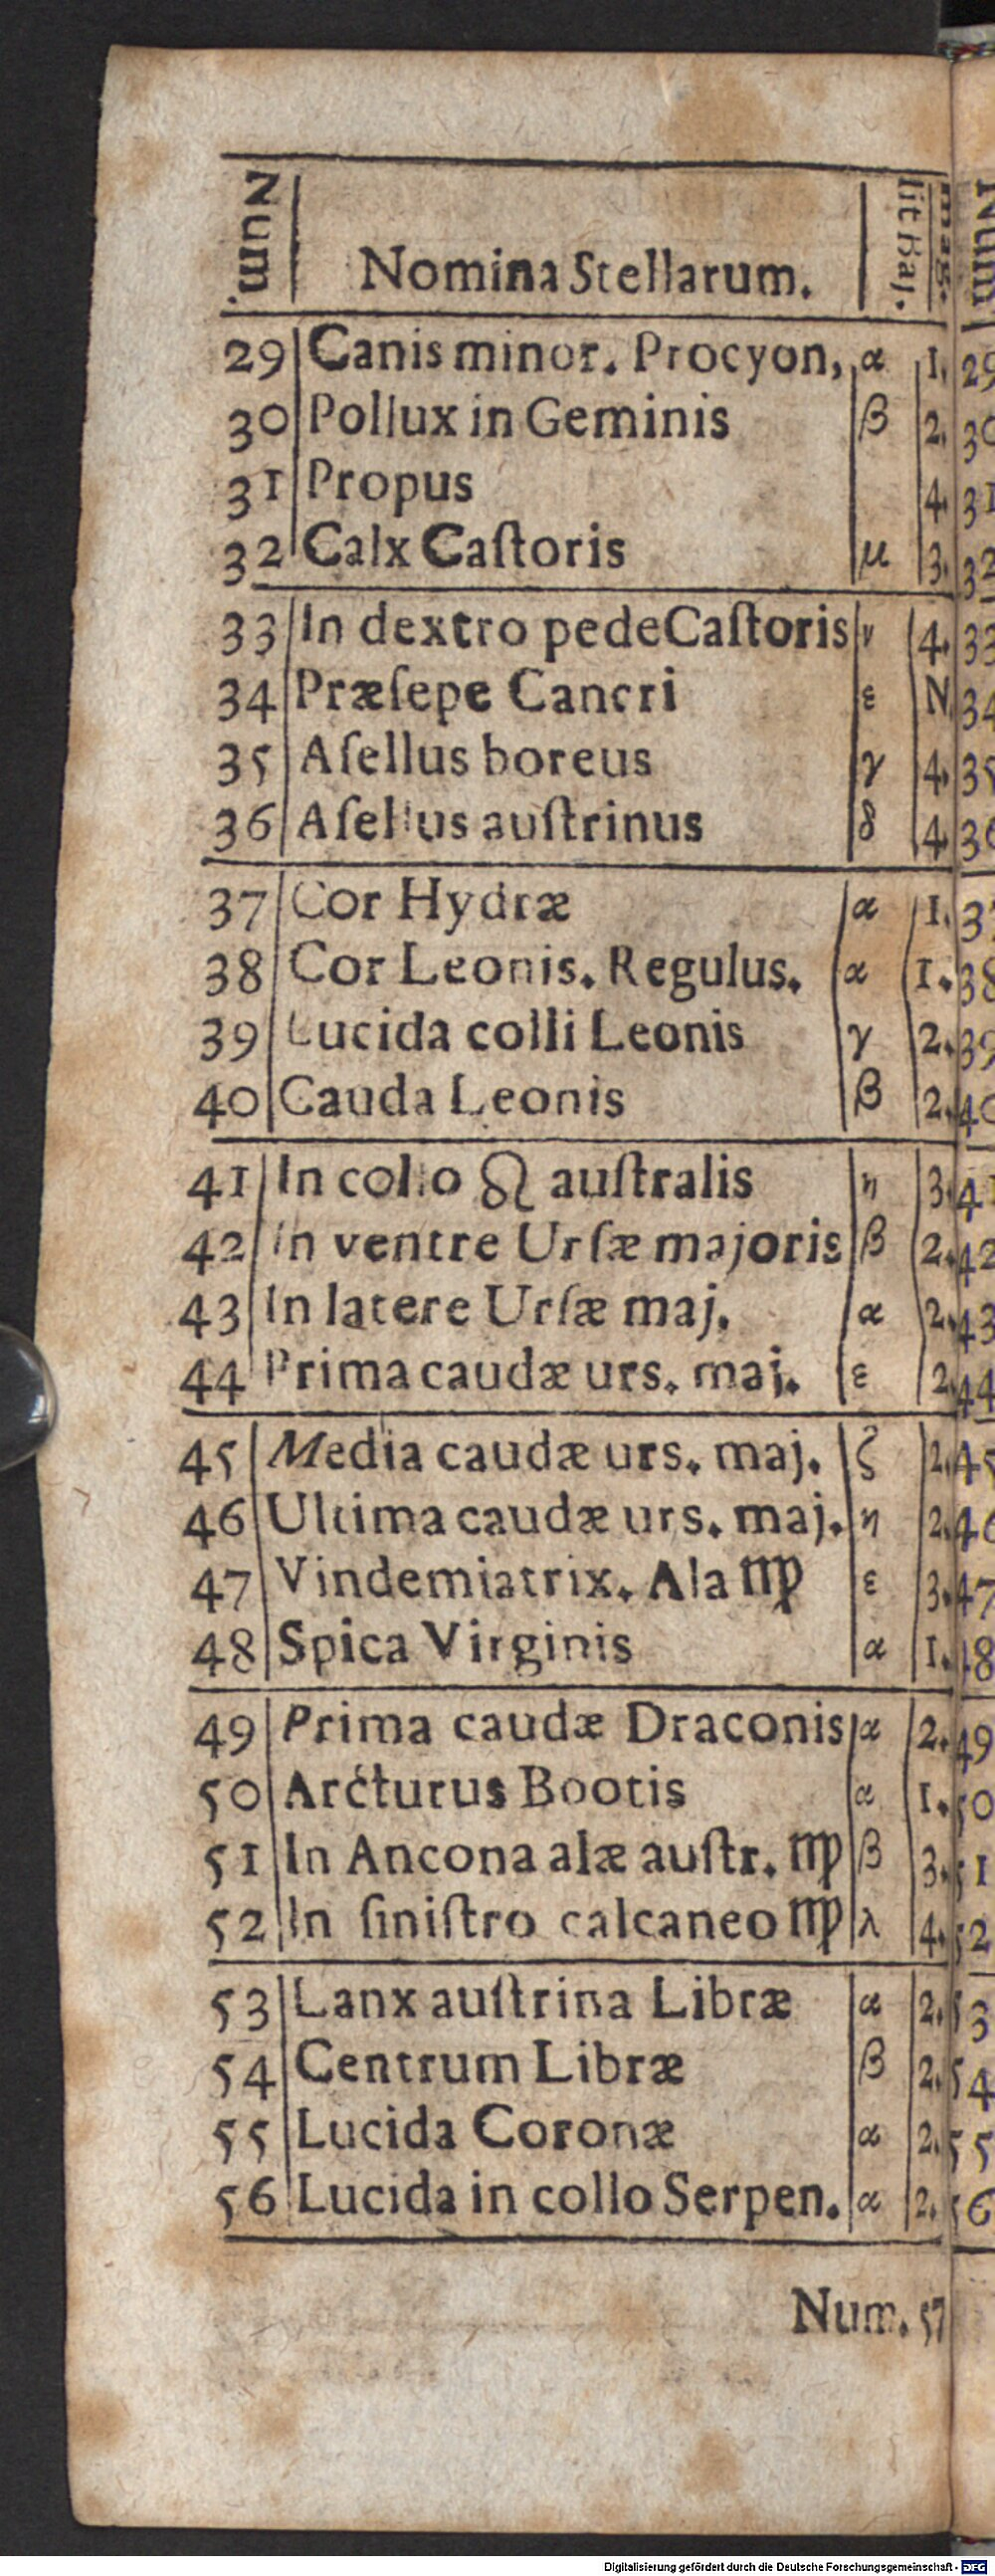 Num. Nomina Stellarum. lit Baj. mag. Num
29 Canis minor. Procyon, α 1. 29
30 Pollux in Geminis β 2. 30
31 Propus 4. 31
32 Calx Caſtoris μ 3. 32
33 In dextro pede Caſtoris ν 4. 33
34 Præſepe Cancri ε N. 34
35 Aſellus boreus γ 4. 35
36 Aſellus auſtrinus δ 4. 36
37 Cor Hydræ α 1. 37
38 Cor Leonis. Regulus. α 1. 38
39 Lucida colli Leonis γ 2. 39
40 Cauda Leonis β 2. 40
41 In collo ♌ auſtralis η 3. 41
42 In ventre Urſæ majoris β 2. 42
43 In latere Urſæ maj. α 2. 43
44 Prima caudæ urs. maj. ε 2. 44
45 Media caudæ urs. maj. ζ 2. 45
46 Ultima caudæ urs. maj. η 2. 46
47 Vindemiatrix. Ala ♍ ε 3. 47
48 Spica Virginis α 1. 48
49 Prima caudæ Draconis α 2. 49
50 Arcturus Bootis α 1. 50
51 In Ancona alæ auſtr. ♍ β 3. 51
52 In ſiniſtro calcaneo ♍ λ 4. 52
53 Lanx auſtrina Libræ α 2. 53
54 Centrum Libræ β 2. 54
55 Lucida Coronæ α 2. 55
56 Lucida in collo Serpen. α 2. 56
Num. 57
Digitalisierung gefördert durch die Deutsche Forschungsgemeinschaft - DFG